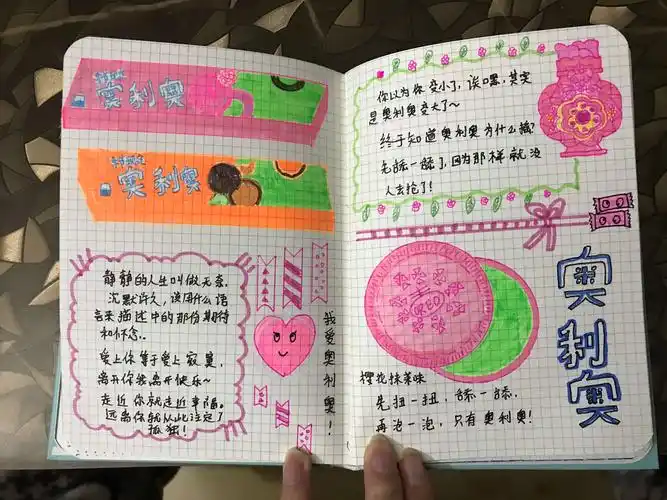 奥利奥
奥利奥
静静的人生叫做无奈.
沉默许久,该用什么语
言来描述中的那份期待
和怀念.
爱上你等于爱上寂寞,
离开你等离开快乐~
走近你就走近幸福.
远离你就从此注定了
孤独!
我爱奥利奥!
你以为你变小了,诶嘿,其实
是奥利奥变大了~
终于知道奥利奥为什么
先舔一舔了,因为那样就没
人去抢了!
OREO
樱花抹茶味
先扭一扭,舔一舔.
再泡一泡,只有奥利奥!
奥利奥